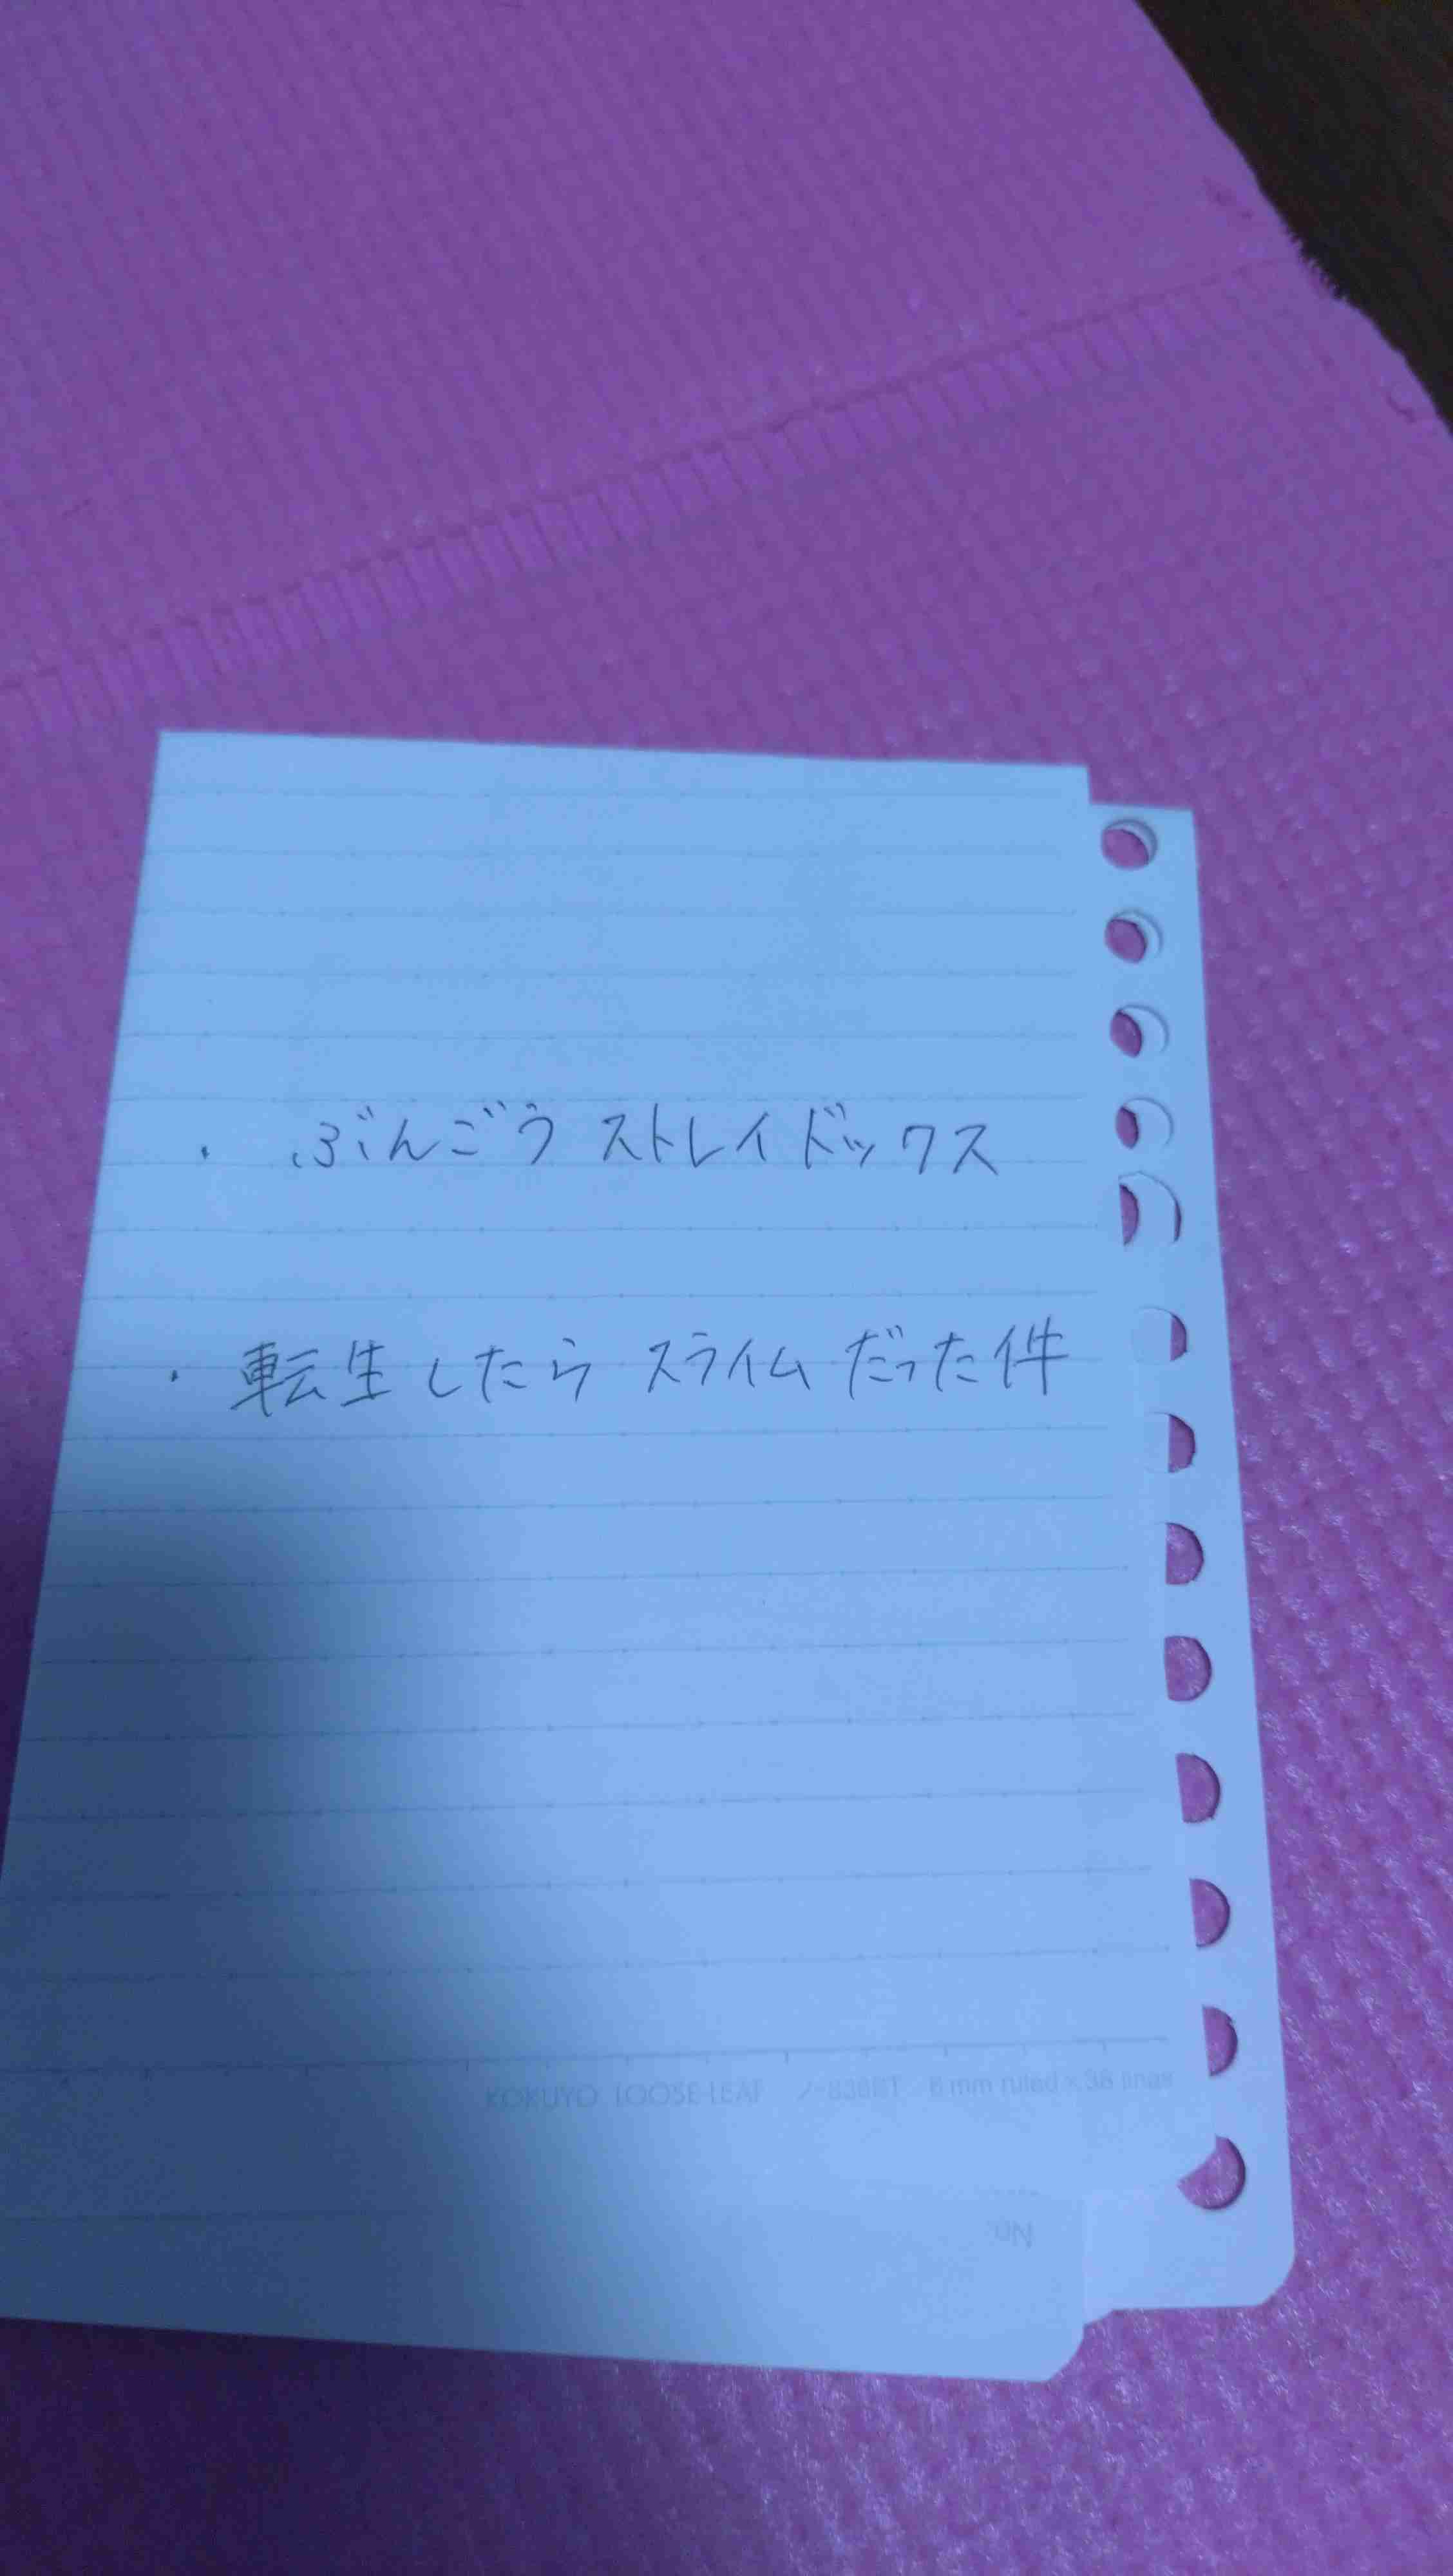 ・ ぶんごうストレイドックス
・ 転生したらスライムだった件
KOKUYO LOOSE-LEAF ノ-836BT 6 mm ruled × 36 lines
No.